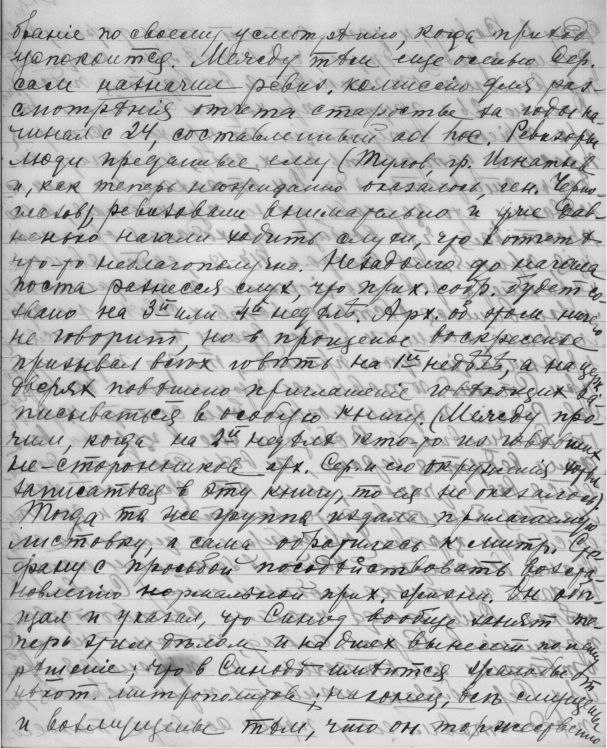 браніе по своему усмотрѣнію, когда приход
успокоится. Между тем еще осенью Сер.
сам назначил ревиз. комиссію для раз-
смотрѣнія отчета старосты за годы на-
чиная с 24, составленный ad hoc. Ревизоры
люди преданные ему (Тулов, гр. Игнатьев
и, как теперь неожиданно оказалось, ген. Черно
глазов) ревизовали внимательно и уже дав-
ненько начали ходить слухи, что в отчетѣ
что-то неблагополучно. Незадолго до начала
поста разнесся слух, что прих. собр. будет со
звано на 3ей или 4ой недѣлѣ. Арх. об этом ничего
не говорит, но в прощеное воскресенье
призывал всѣх говѣть на 1ой недѣлѣ, а на церк.
дверях повѣшено приглашеніе говѣющих за-
писываться в особую книгу. (Между про-
чим, когда на 2ой недѣлѣ кто-то из говѣвших
не-сторонников арх. Сер. и его окруженія
записаться в эту книгу, то ея не оказалось).
Тогда та же группа издала прилагаемую
листовку, а сама обратилась к митр. Сте
фану с просьбой посодѣйствовать возста-
новленію нормальной прих. жизни. Он
щал и указал, что Синод вообще занят те-
перь этим дѣлом и на днях вынесет по нему
рѣшеніе; что в Синодѣ имѣются жалобы от
митрополитов; наконец, всѣ
и возмущены тѣм, что он торжественно